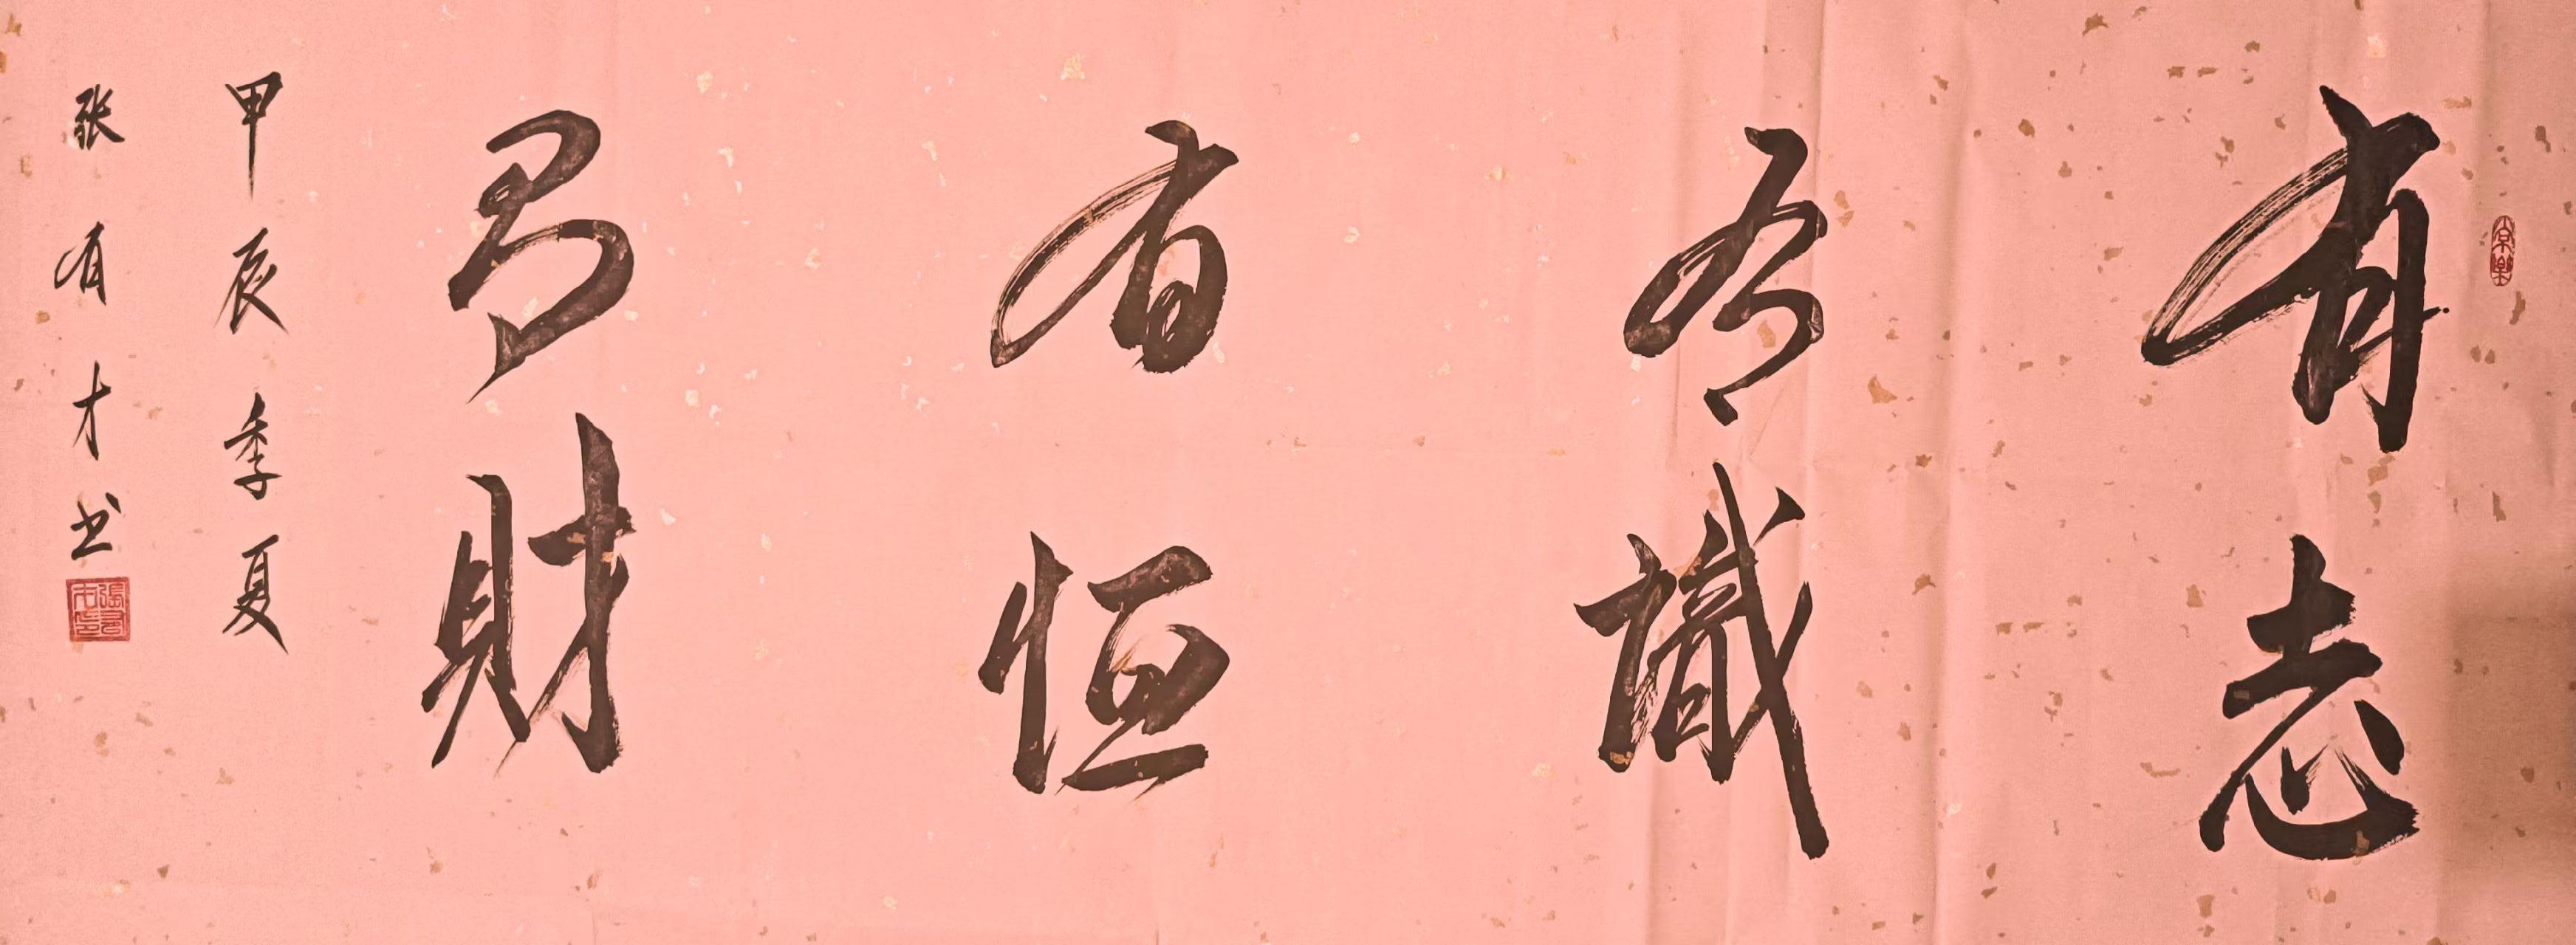 有志
有識
有恒
有財
甲辰季夏
张有才书